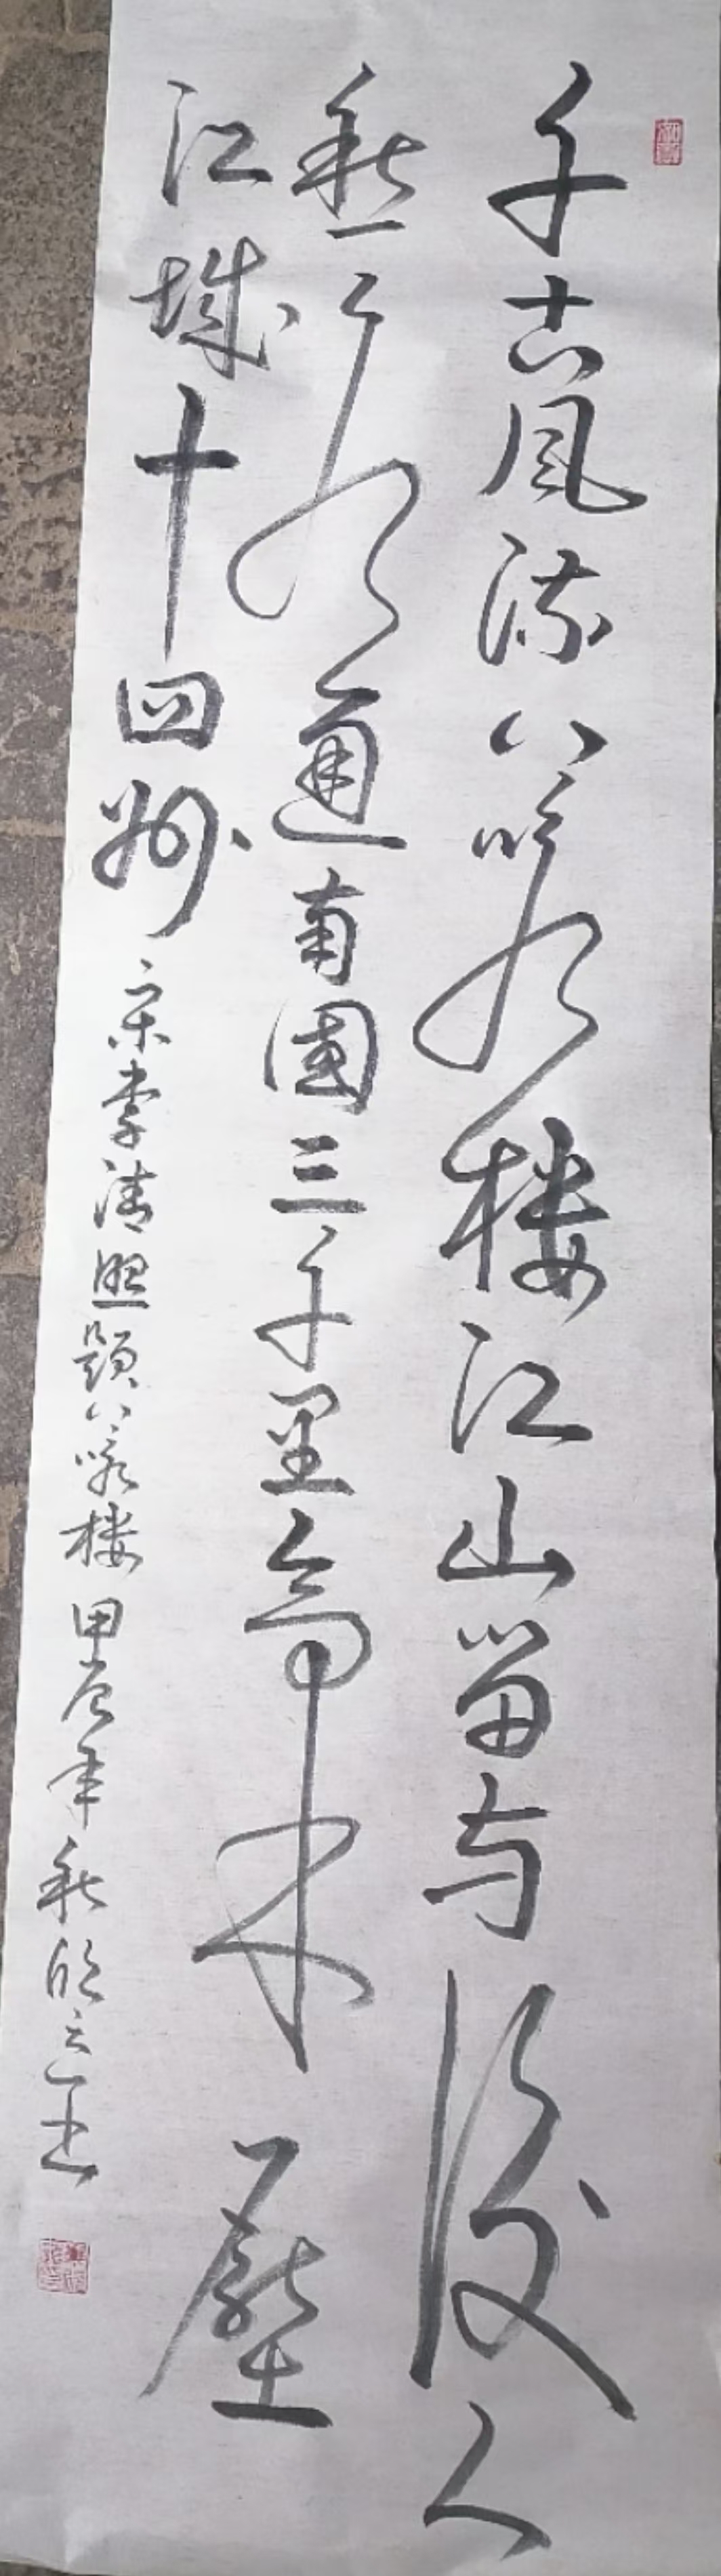 千古风流八咏楼江山留与後人
愁水通南國三千里氣壓
江城十四州 宋李清照题八咏楼 甲辰年秋